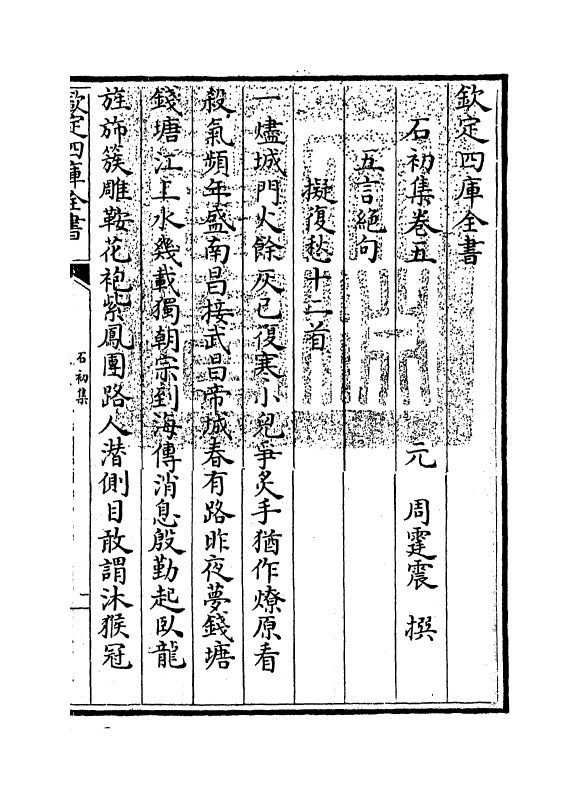 欽定四庫全書
石初集卷五
元 周霆震 撰
五言絕句
擬復愁十二首
一燼城門火餘灰已復寒小兒爭炙手猶作燎原看
殺氣頻年盛南昌接武昌帝城春有路昨夜夢錢塘
錢塘江上水幾載獨朝宗到海傳消息殷勤起臥龍
旌斾簇雕鞍花袍紫鳳團路人潛側目敢謂沐猴冠
欽定四庫全書
石初集
一